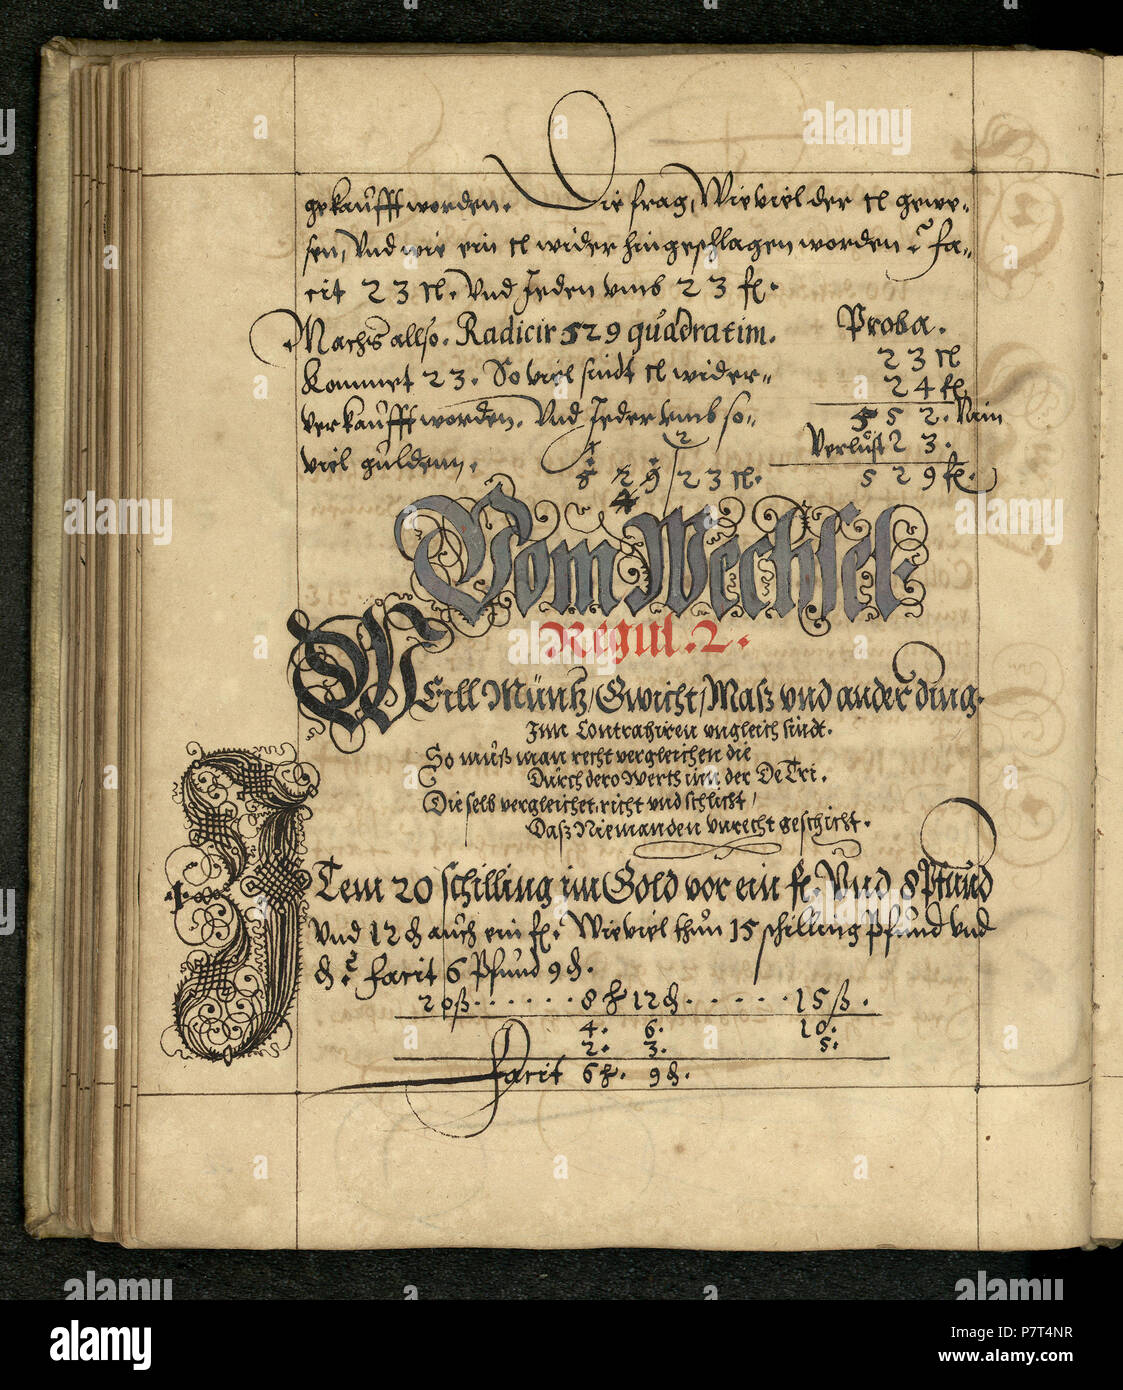 gekaufft worden. Die frag, Wieviel der El gewe-
sen, Vnd wie ein El wider hingeschlagen worden? Fa-
cit 23 El. Vnd Jeden vmb 23 fl.
Machs allso. Radicir 529 quadratim.
Kommet 23. So viel sindt El wider-
verkaufft worden. Vnd Jeder vmb so-
viel guldenn.
529 | 23 El.
4
Proba.
23 El
24 fl.
552. Nein
Verlust 23.
529 fl.
Vom Wechsel.
Regul. 2.
WEill Müntz, Gwicht, Maß vnd ander ding.
Inn Contrahiren vngleich sindt.
So muß man recht vergleichen die
Durch dero Werth inn der De Tri.
Dieselb vergleichet, richt vnd schlicht,
Daß Niemanden vnrecht geschicht.
ITem 20 schilling im Gold vor ein fl. Vnd 8 Pfund
Vnd 12 ₰ auch ein fl. Wieviel thun 15 schilling Pfund vnd
₰? Facit 6 Pfund 9 ₰.
20 ß. . . . . . 8 ℔ 12 ₰. . . . . 15 ß.
4. 6. 10.
2. 3. 5.
Facit 6 ℔. 9 ₰.
alamy
Image ID: P7T4NR
www.alamy.com